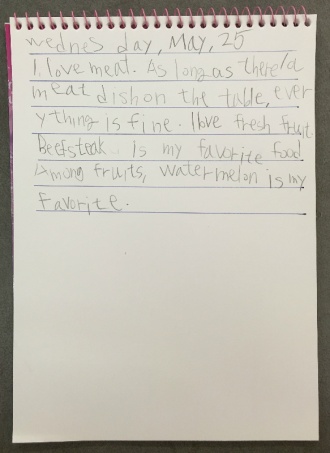 wednes day, May, 25
I love meat. As long as there/a
meat dish on the table, ever
ything is fine. I love fresh fruit
Beefsteak is my favorite food.
Among fruits, watermelon is my
favorite.